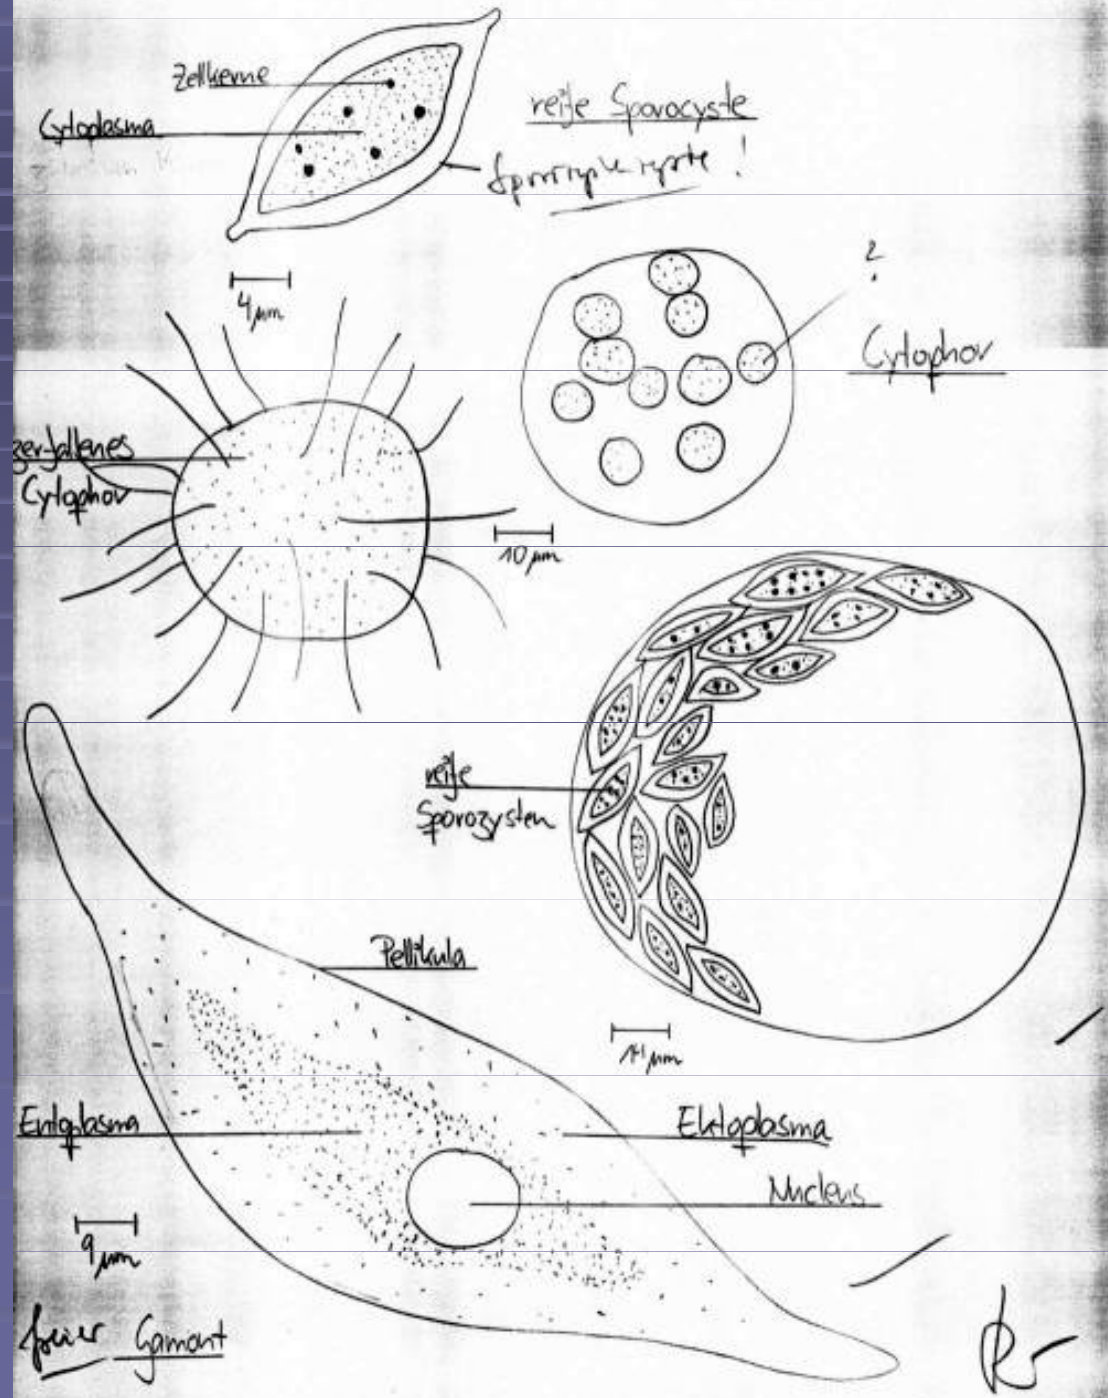 Zellkerne
Cytoplasma
reife Sporocyste
4 µm
?
Cytophor
zerfallenes
Cytophor
10 µm
reife
Sporozysten
Pellikula
14 µm
Entoplasma
Ektoplasma
Nucleus
9 µm
freier Gamont